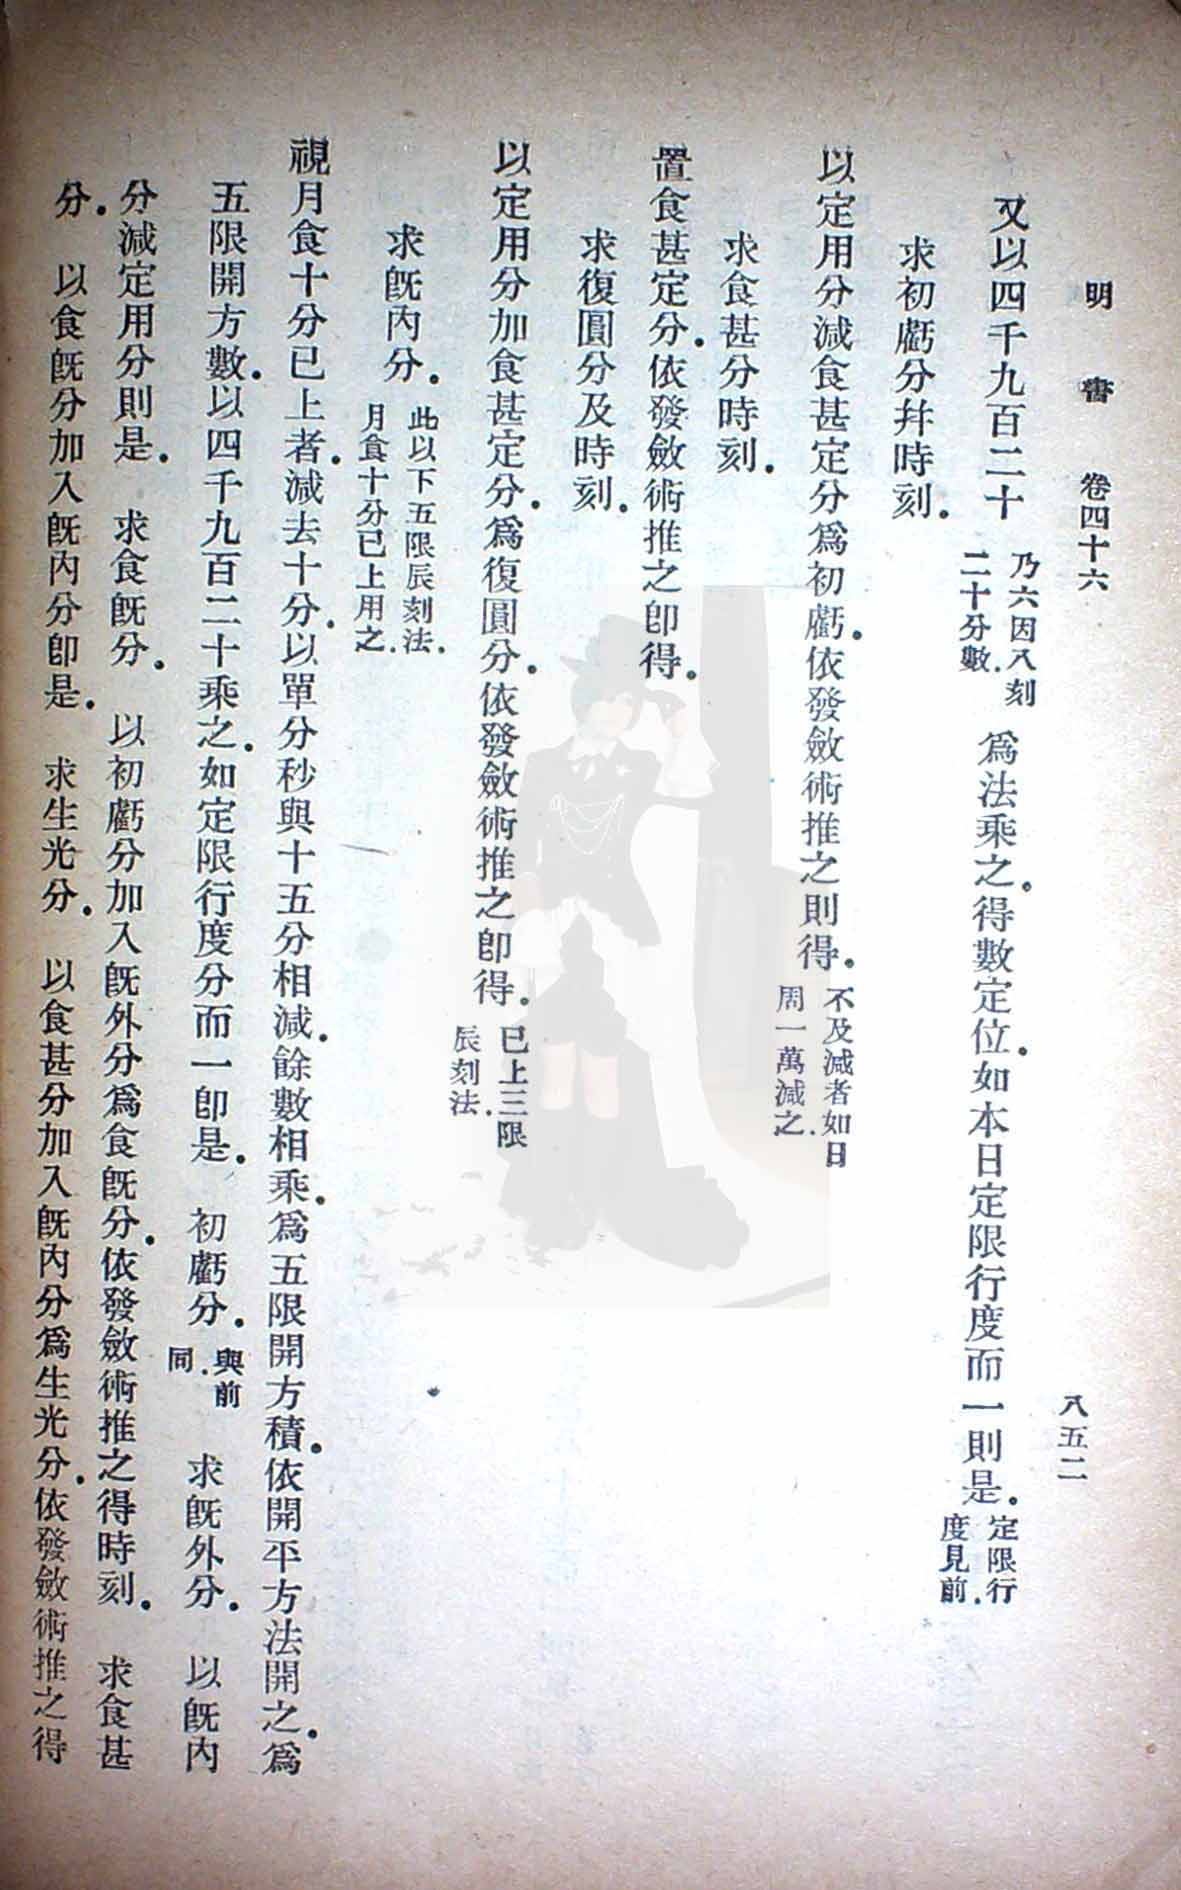 明書 卷四十六 八五二
又以四千九百二十乃六因八刻二十分數.爲法乘之.得數定位.如本日定限行度而一則是.定限行度見前.
求初虧分幷時刻.
以定用分減食甚定分爲初虧.依發斂術推之則得.不及減者如日周一萬減之.
求食甚分時刻.
置食甚定分.依發斂術推之卽得.
求復圓分及時刻.
以定用分加食甚定分.爲復圓分.依發斂術推之卽得.已上三限辰刻法.
求旣內分.此以下五限辰刻法.月食十分已上用之.
視月食十分已上者.減去十分.以單分秒與十五分相減.餘數相乘.爲五限開方積.依開平方法開之.爲
五限開方數.以四千九百二十乘之.如定限行度分而一卽是. 初虧分.與前同. 求旣外分. 以旣內
分減定用分則是. 求食旣分. 以初虧分加入旣外分爲食旣分.依發斂術推之得時刻. 求食甚
分. 以食旣分加入旣內分卽是. 求生光分. 以食甚分加入旣內分爲生光分.依發斂術推之得